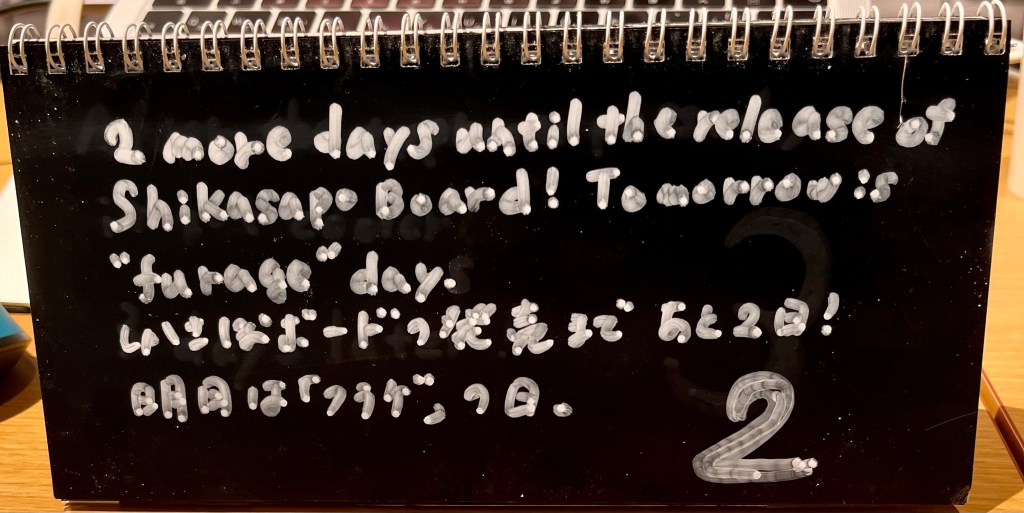 2 more days until the release of
Shikasapo Board! Tomorrow is
"furage" day.
しかさぽボードの発売まで あと2日!
明日は「フラゲ」の日.
2